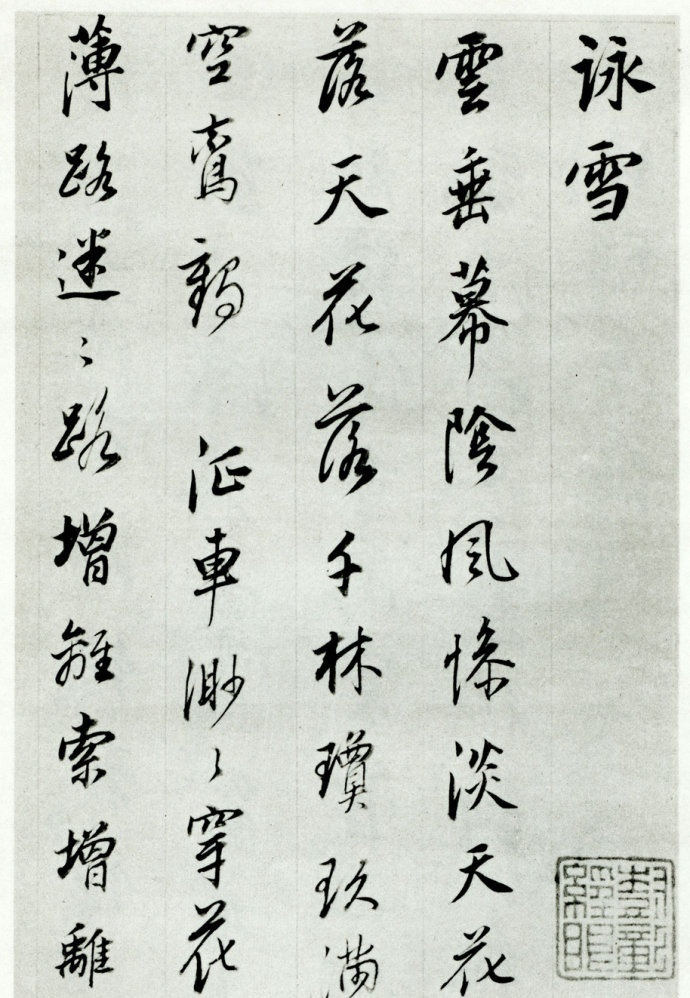 詠雪
雲垂幕陰風慘淡天花
落天花落千林瓊玖滿
空鸞鶴 征車渺〻穿花
薄路迷〻路增離索增離